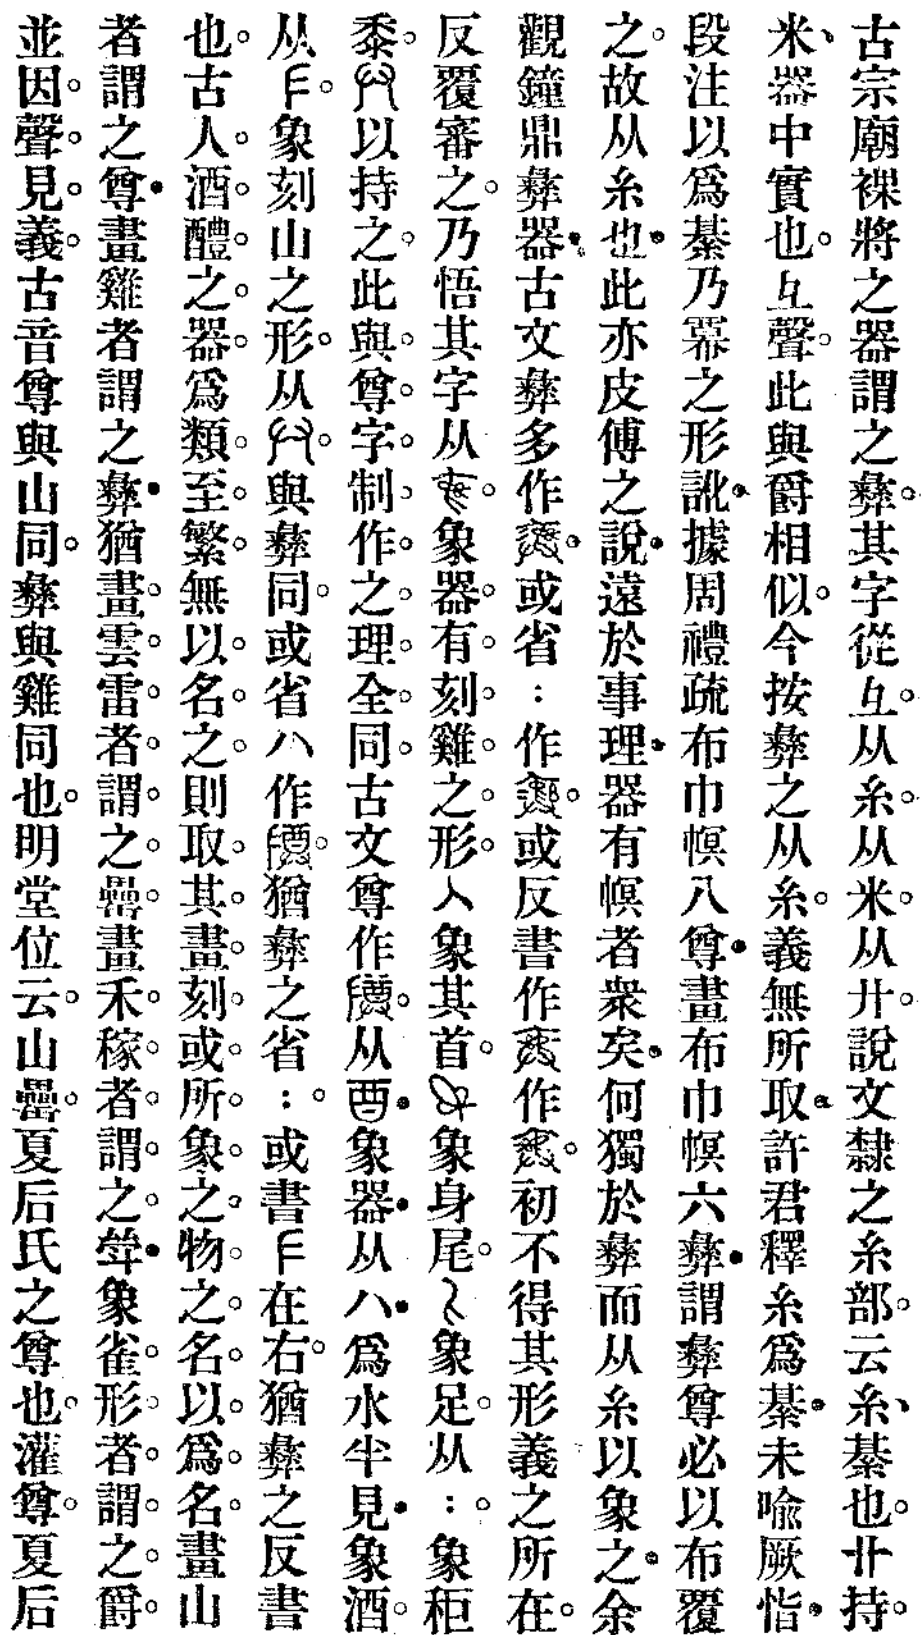 古宗廟祼將之器謂之彝。其字從彑。从糸。从米。从廾。說文隸之糸部。云糸、綦也。廾持。
米、器中實也。彑聲。此與爵相似。今按彝之从糸。義無所取。許君釋糸爲綦。未喻厥恉。
段注以爲綦乃冪之形訛。據周禮疏布巾幎八尊。畫布巾幎六彝。謂彝尊必以布覆
之。故从糸也。此亦皮傅之說。遠於事理。器有幎者衆矣。何獨於彝而从糸以象之。余
觀鐘鼎彝器。古文彝多作。或省:作。或反書作作。初不得其形義之所在。
反覆審之。乃悟其字从。象器。有。刻。雞。之。形。人象其首。象身尾。象足。从:。象秬
黍。以持之。此與。尊。字。制。作。之。理。全。同。古文尊作。从酉。象器。从八。爲水半見。象酒。
从。象刻山之形。从。與彝同。或省八作。猶彝之省:。或書在右。猶彝之反書
也。古人。酒。醴。之。器。爲類。至。繁。無以。名。之。則取。其。畫。刻。或。所。象。之。物。之。名。以。爲。名。畫山
者謂之尊。畫雞者謂之彝。猶畫。雲。雷。者。謂。之。罍。畫禾。稼。者。謂。之。斝。象雀。形。者。謂。之。爵。
並因。聲。見。義。古音尊與山同。彝與雞同也。明堂位云。山罍。夏后氏之尊也。灌尊。夏后